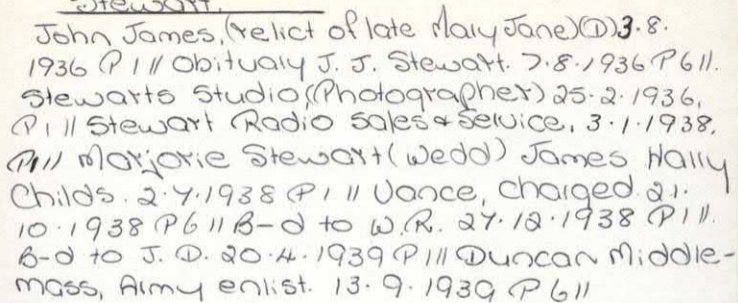 Stewart.
John James, (relict of late Mary Jane) (D) 3.8.
1936 P1 // Obituary J. J. Stewart. 7.8.1936 P6 //.
Stewarts Studio (Photographer) 25.2.1936,
P1 // Stewart Radio Sales & Service, 3.1.1938,
P1 // Marjorie Stewart (wedd) James Harry
Childs. 2.4.1938 P1 // Vance, charged 21.
10.1938 P6 // B-d to W.R. 27.12.1938 P1 //.
B-d to J. D. 20.4.1939 P1 // Duncan Middle-
mass, Army enlist. 13.9.1939 P6 //